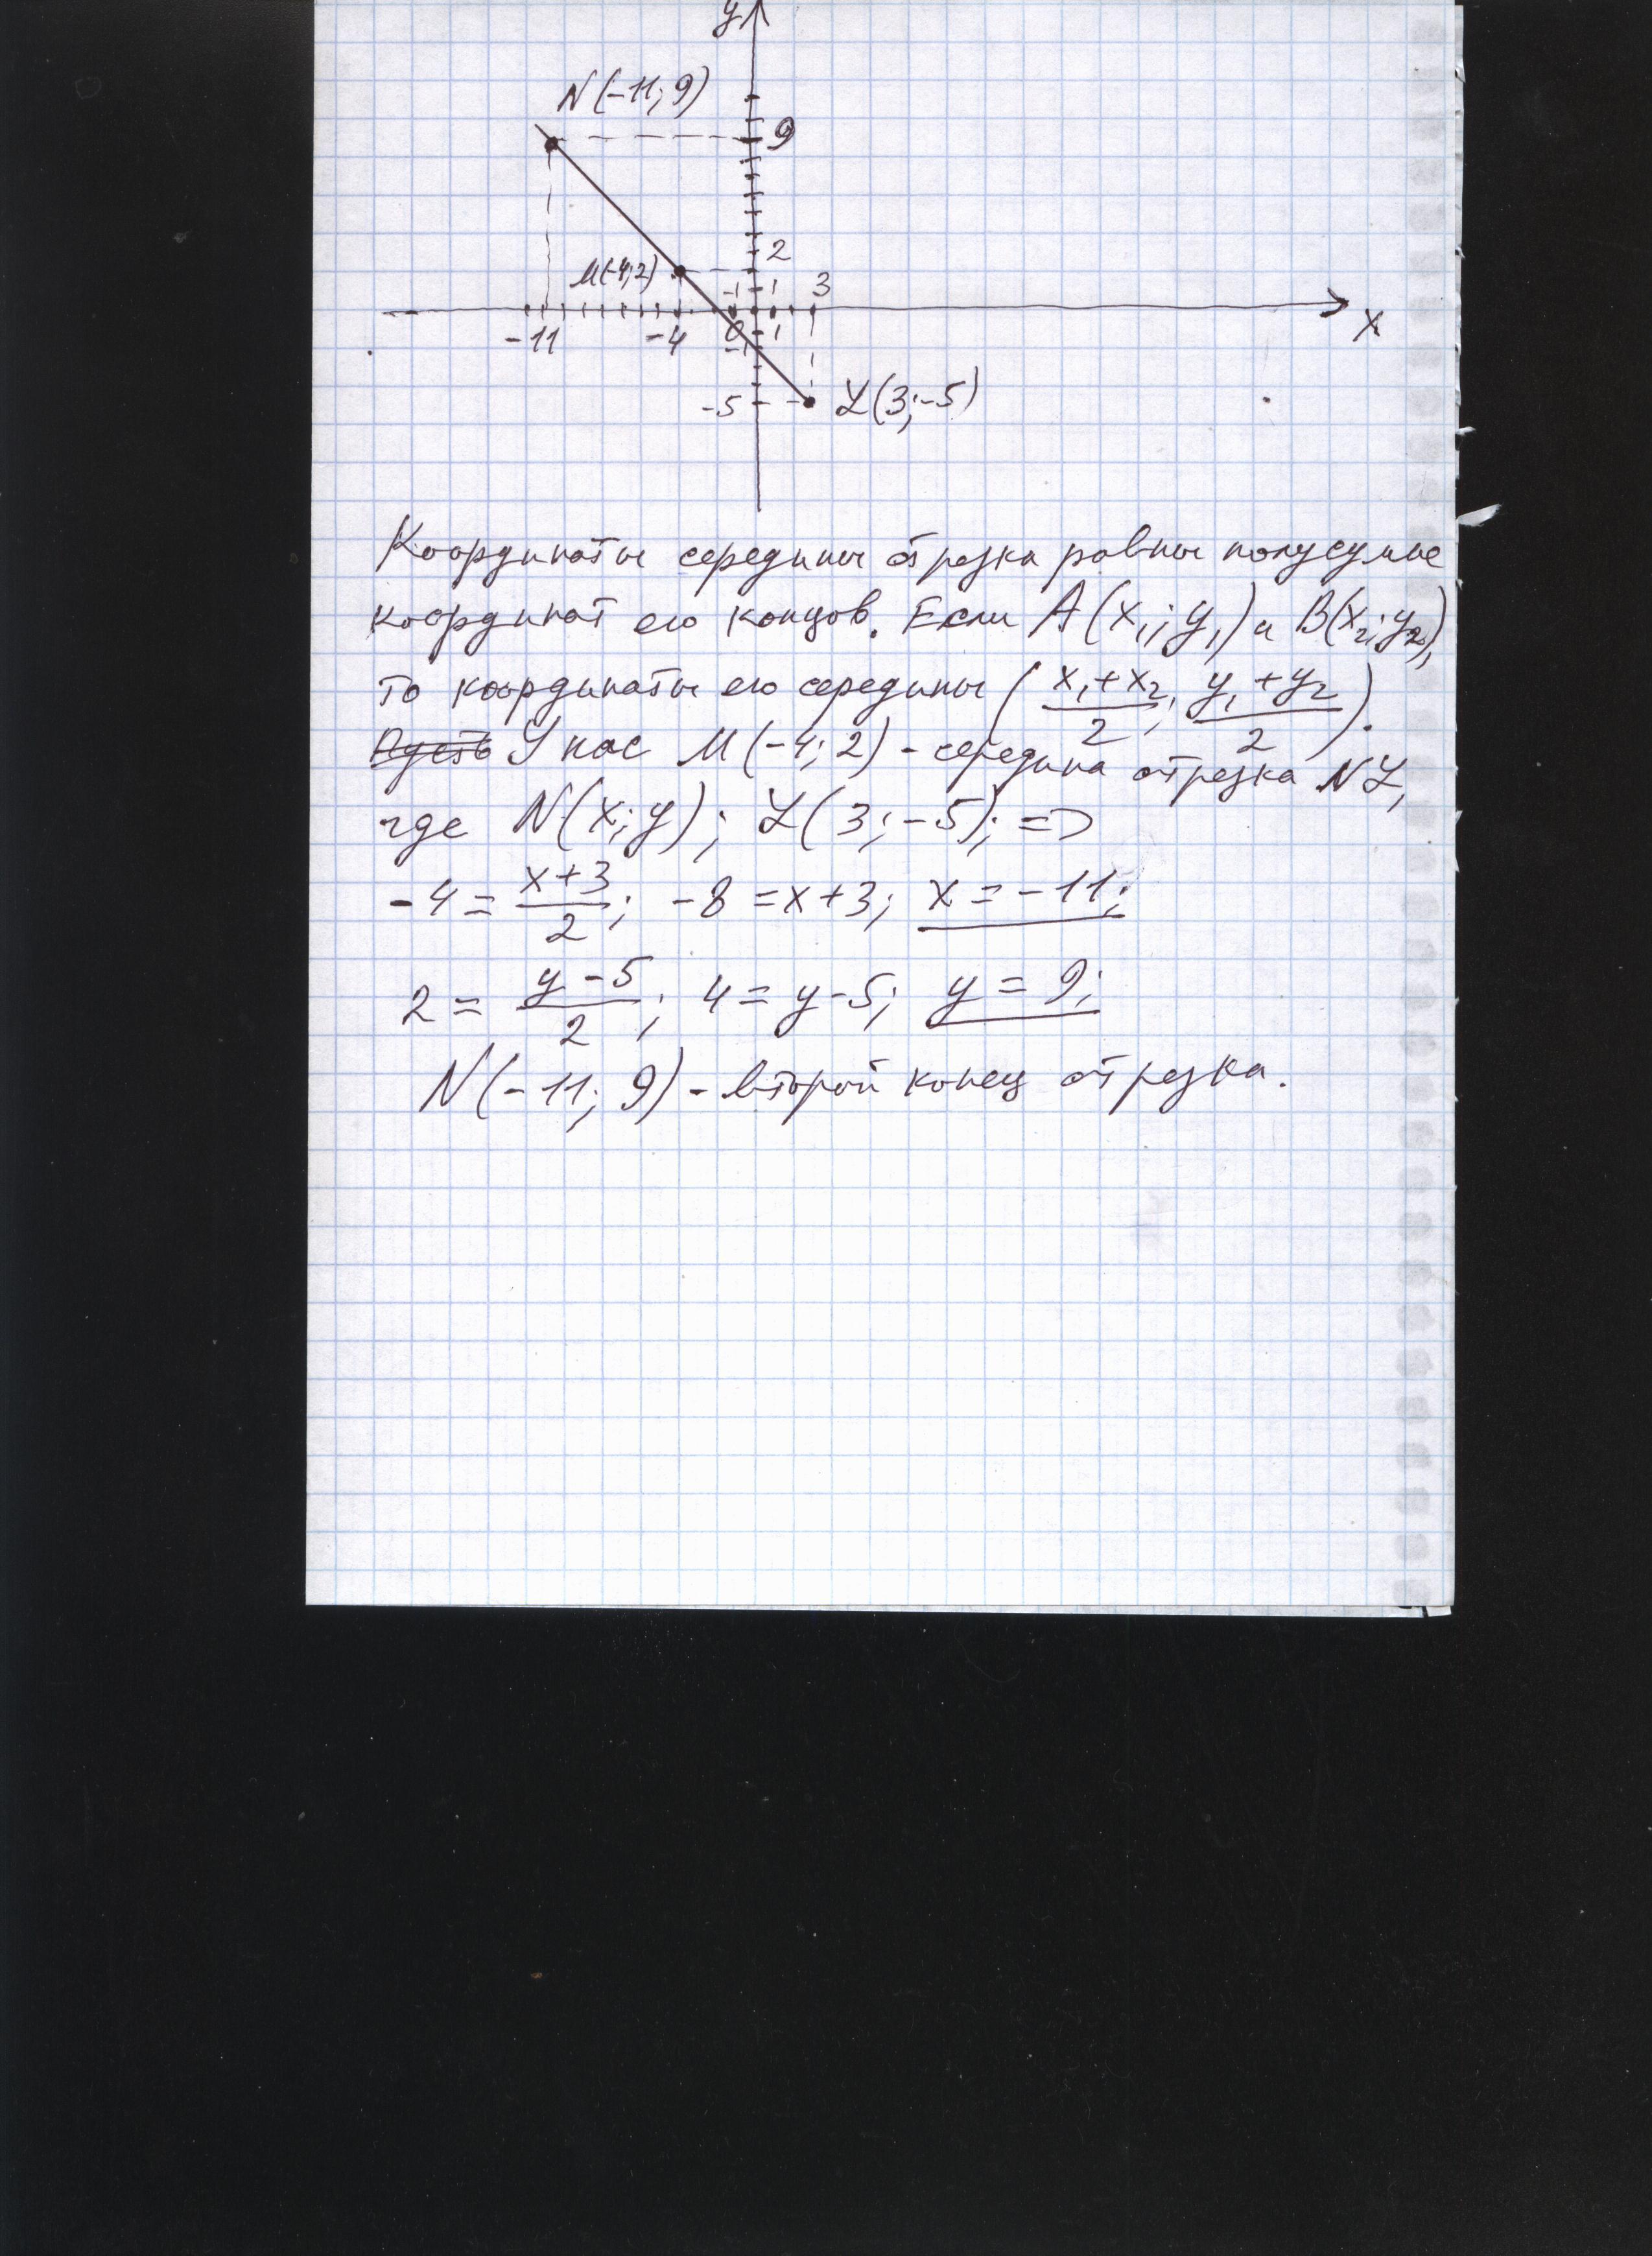 y
N(-11; 9)
9
M(-4;2)
2
-1 1 3
-11 -4 0 1
-1
x
-5
L(3;-5)
Координаты середины отрезка равны полусумме
координат его концов. Если A(x₁; y₁) и B(x₂; y₂),
то координаты его середины ( x₁+x₂/2 ; y₁+y₂/2 ).
Пусть У нас M(-4; 2) - середина отрезка NL,
где N(x; y); L(3; -5); =>
-4 = x+3/2 ; -8 = x+3; x = -11;
2 = y-5/2 ; 4 = y-5; y = 9;
N(-11; 9) - второй конец отрезка.